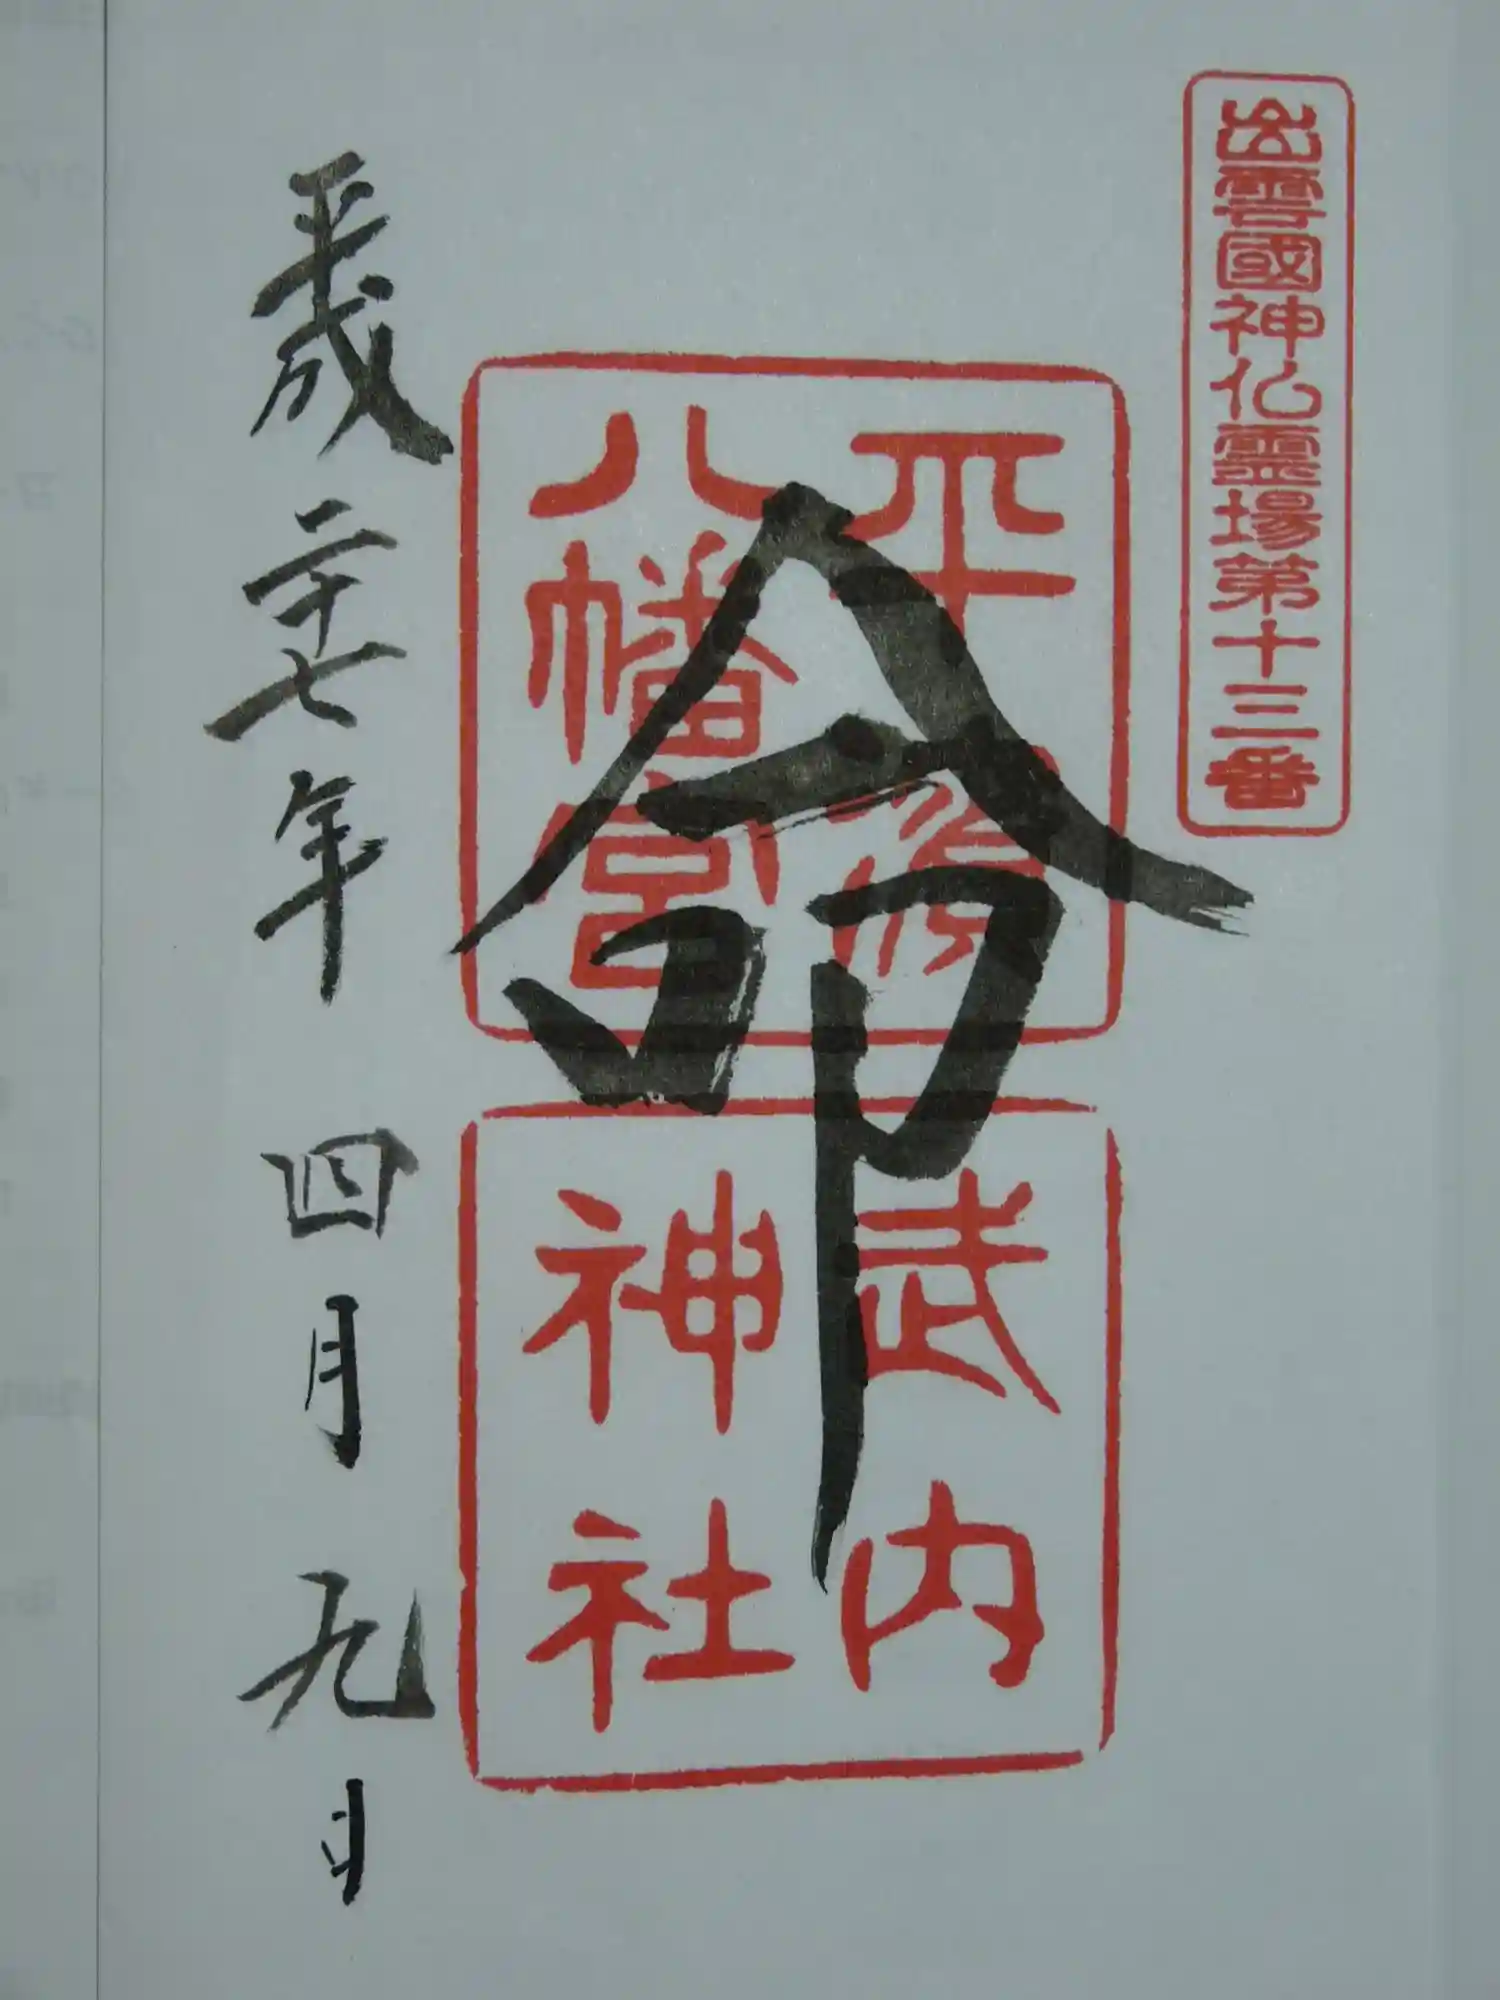 出雲國神仏霊場第十三番
平濱
八幡宮
命
武内
神社
平成二十七年四月九日